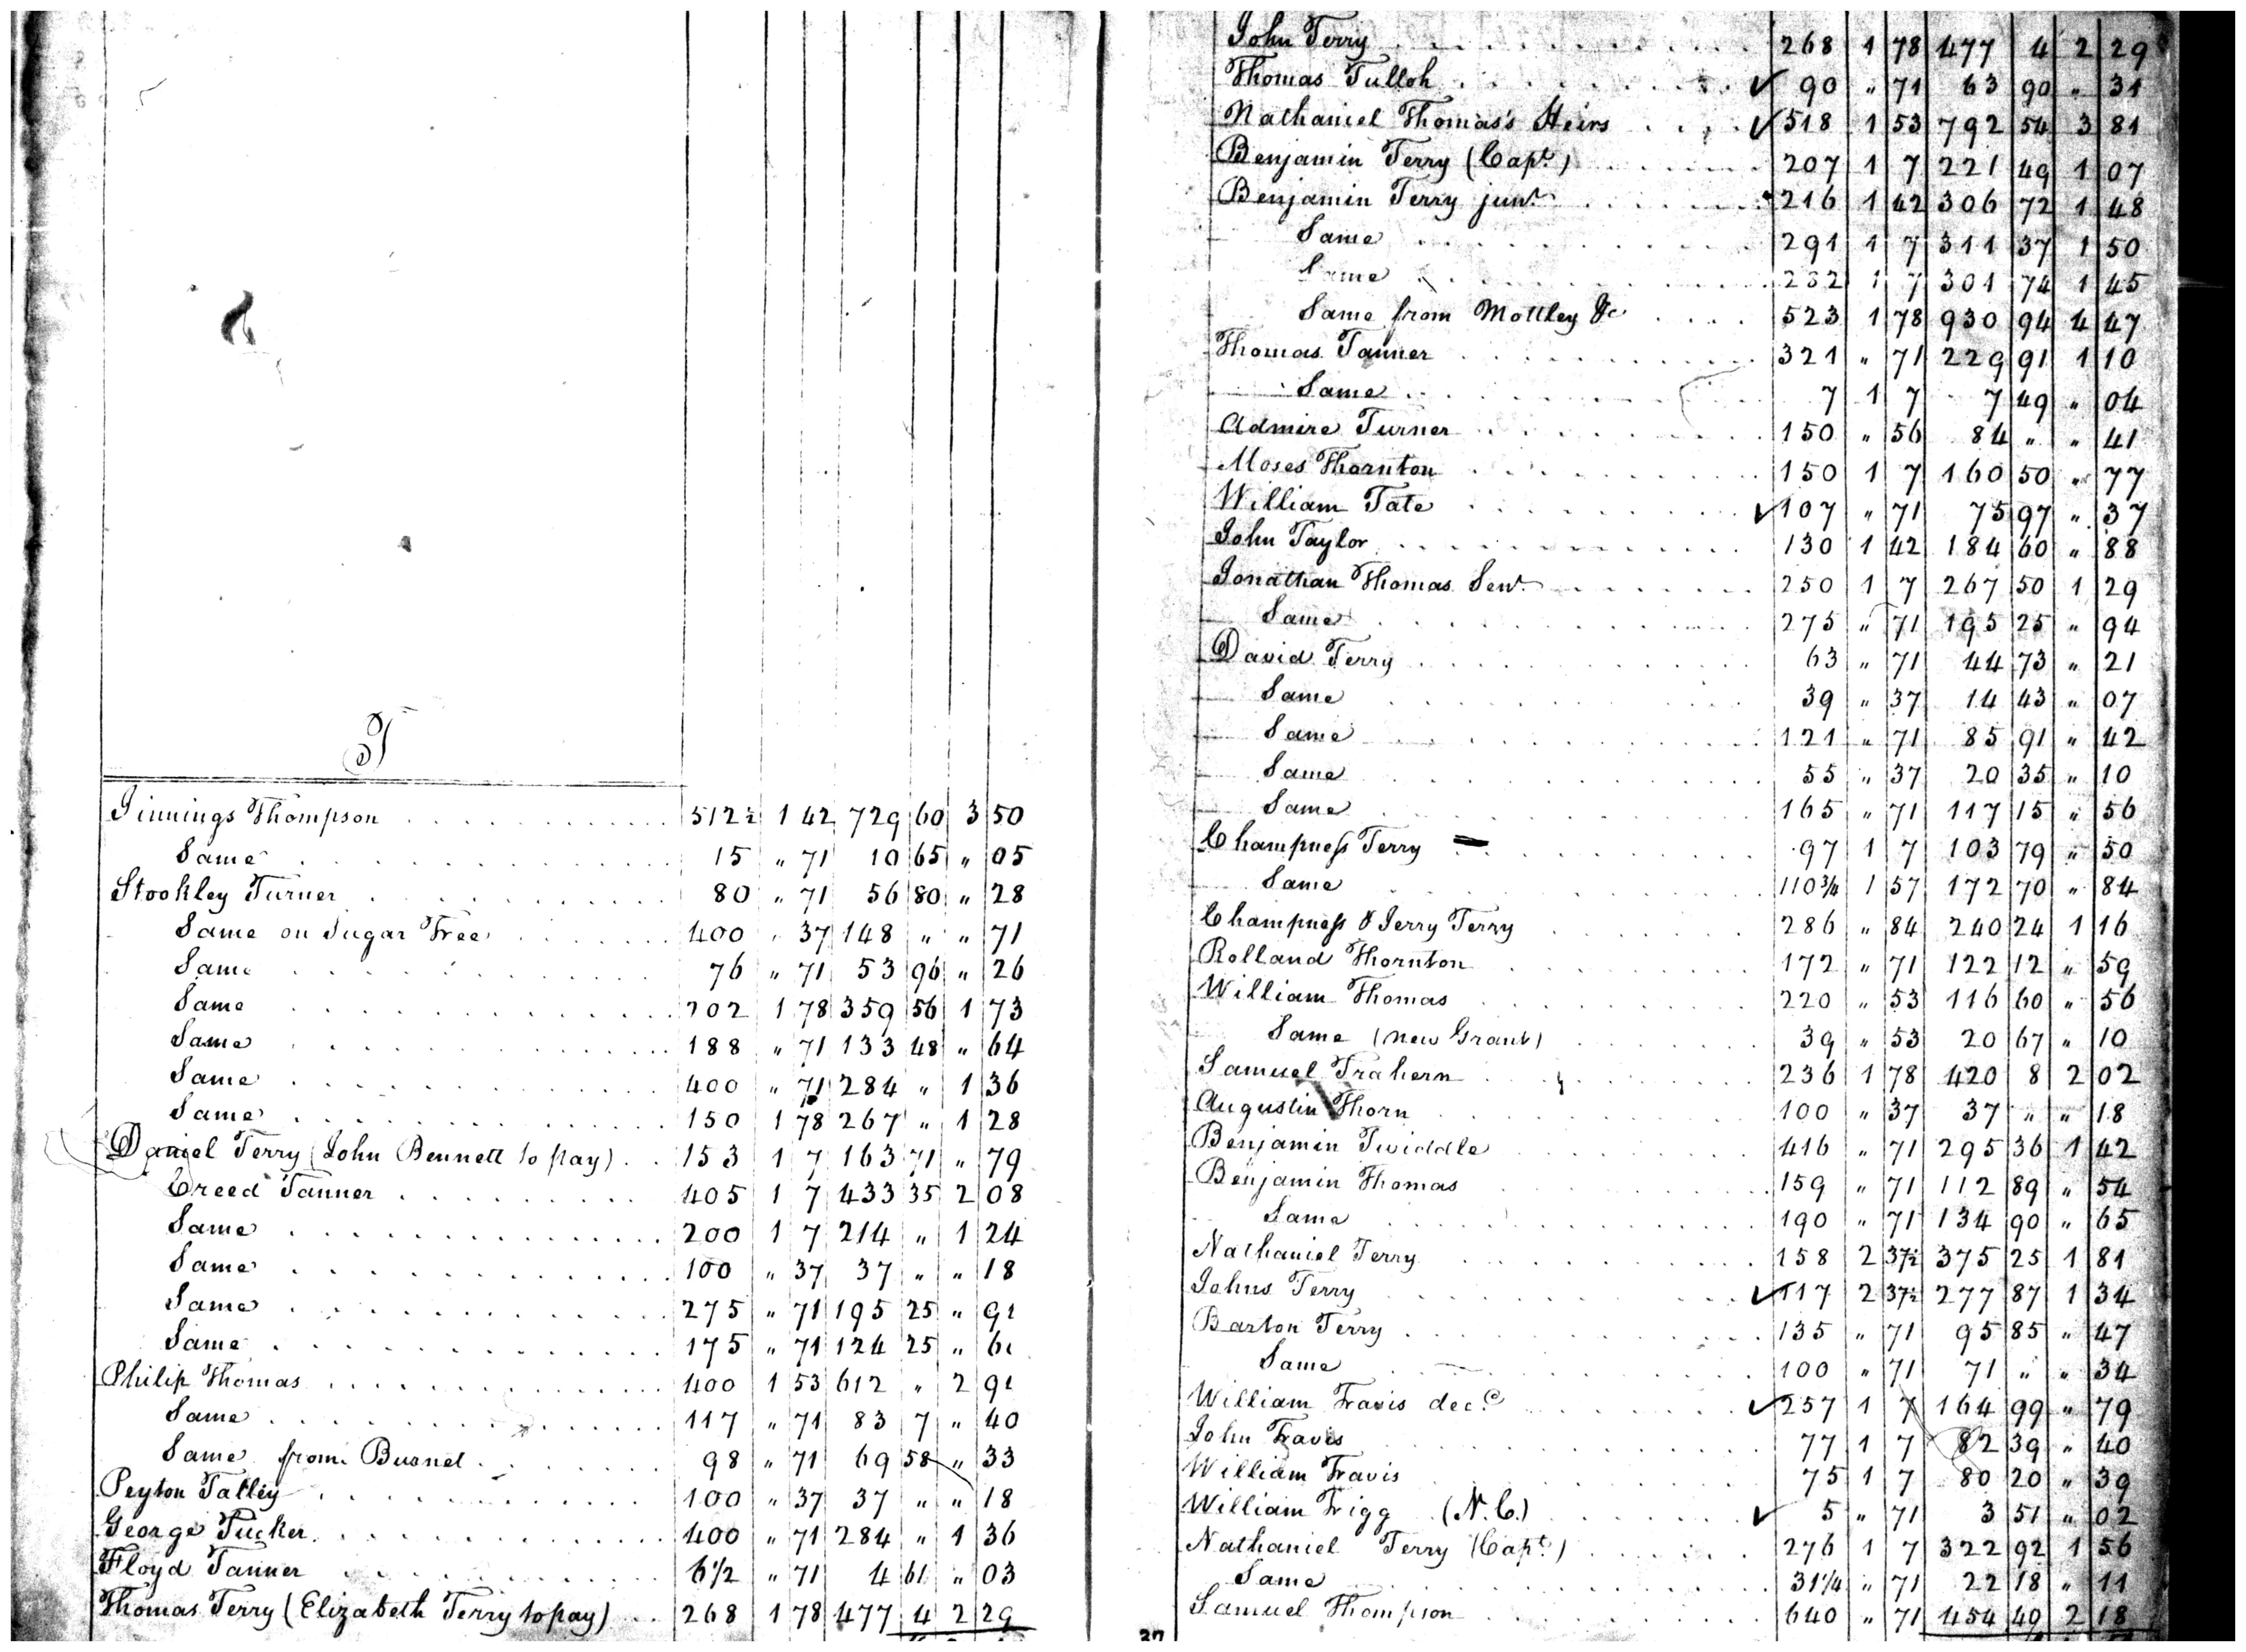 T
Jinnings Thompson 512½ 1 42 729 60 3 50
Same 15 " 71 10 65 " 05
Stookley Turner 80 " 71 56 80 " 28
Same on Sugar Tree 400 " 37 148 " " 71
Same 76 " 71 53 96 " 26
Same 202 1 78 359 56 1 73
Same 188 " 71 133 48 " 64
Same 400 " 71 284 " 1 36
Same 150 1 78 267 " 1 28
Daniel Terry (John Bennett to pay) 153 1 7 163 71 " 79
Creed Tanner 405 1 7 433 35 2 08
Same 200 1 7 214 " 1 24
Same 100 " 37 37 " " 18
Same 275 " 71 195 25 "
Same 175 " 71 124 25 "
Philip Thomas 400 1 53 612 " 2
Same 117 " 71 83 7 " 40
Same from 98 " 71 69 58 " 33
Peyton Talley 100 " 37 37 " " 18
George Tucker 400 " 71 284 " 1 36
Floyd Tanner 6½ " 71 4 61 " 03
Thomas Terry (Elizabeth Terry to pay) 268 1 78 477 4 2 29
John Terry 268 1 78 477 4 2 29
Thomas Tulloh ✓ 90 " 71 63 90 " 31
Nathaniel Thomas's Heirs ✓ 518 1 53 792 54 3 81
Benjamin Terry (Capt.) 207 1 7 221 49 1 07
Benjamin Terry junr. 216 1 42 306 72 1 48
Same 291 1 7 311 37 1 50
Same 282 1 7 301 74 1 45
Same from Mottley &c 523 1 78 930 94 4 47
Thomas Tanner 321 " 71 229 91 1 10
Same 7 1 7 7 49 " 04
Admire Turner 150 " 56 84 " " 41
Moses Thornton 150 1 7 160 50 " 77
William Tate ✓ 107 " 71 75 97 " 37
John Taylor 130 1 42 184 60 " 88
Jonathan Thomas Senr. 250 1 7 267 50 1 29
Same 275 " 71 195 25 " 94
David Terry 63 " 71 44 73 " 21
Same 39 " 37 14 43 " 07
Same 121 " 71 85 91 " 42
Same 55 " 37 20 35 " 10
Same 165 " 71 117 15 " 56
Champness Terry 97 1 7 103 79 " 50
Same 110¾ 1 57 172 70 " 84
Champness & Jerry Terry 286 " 84 240 24 1 16
Rolland Thornton 172 " 71 122 12 " 59
William Thomas 220 " 53 116 60 " 56
Same (new Grant) 39 " 53 20 67 " 10
Samuel Trahern 236 1 78 420 8 2 02
Augustin Thorn 100 " 37 37 " " 18
Benjamin Twiddle 416 " 71 295 36 1 42
Benjamin Thomas 159 " 71 112 89 " 54
Same 190 " 71 134 90 " 65
Nathaniel Terry 158 2 37½ 375 25 1 81
Johns Terry ✓ 117 2 37½ 277 87 1 34
Barton Terry 135 " 71 95 85 " 47
Same 100 " 71 71 " " 34
William Travis decd. ✓ 257 1 7 164 99 " 79
John Travis 77 1 7 82 39 " 40
William Travis 75 1 7 80 20 " 39
William Trigg (N.C.) ✓ 5 " 71 3 51 " 02
Nathaniel Terry (Capt.) 276 1 7 322 92 1 56
Same 31¼ " 71 22 18 " 11
Samuel Thompson 640 " 71 454 40 2 18
37